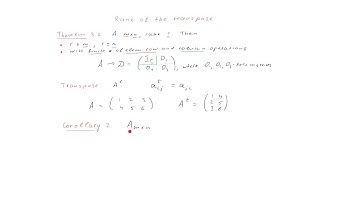 Rank of the transpose
Theorem 3.6 A m×n, rank r. Then
• r ≤ m, r ≤ n
• with finite # of elem. row and column operations
A → D = ( I_r O_1 / O_2 O_3 ), where O_1, O_2, O_3 - zero matrices
Transpose: A^t a^t_ij = a_ji
A = ( 1 2 3 / 4 5 6 ) A^t = ( 1 4 / 2 5 / 3 6 )
Corollary 2 A_m×n